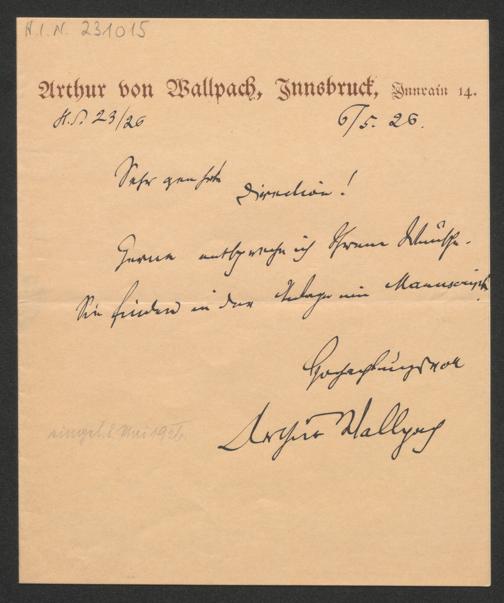 H.I.N. 231015
Arthur von Wallpach, Innsbruck, Innrain 14.
H.S. 23/26
6/5. 26.
Sehr geehrte Direction!
Gerne entspreche ich Ihrem Wunsche.
Sie finden in der Anlage ein Manuscript.
Hochachtungsvoll
Arthur Wallpach
eingel. Mai 1926